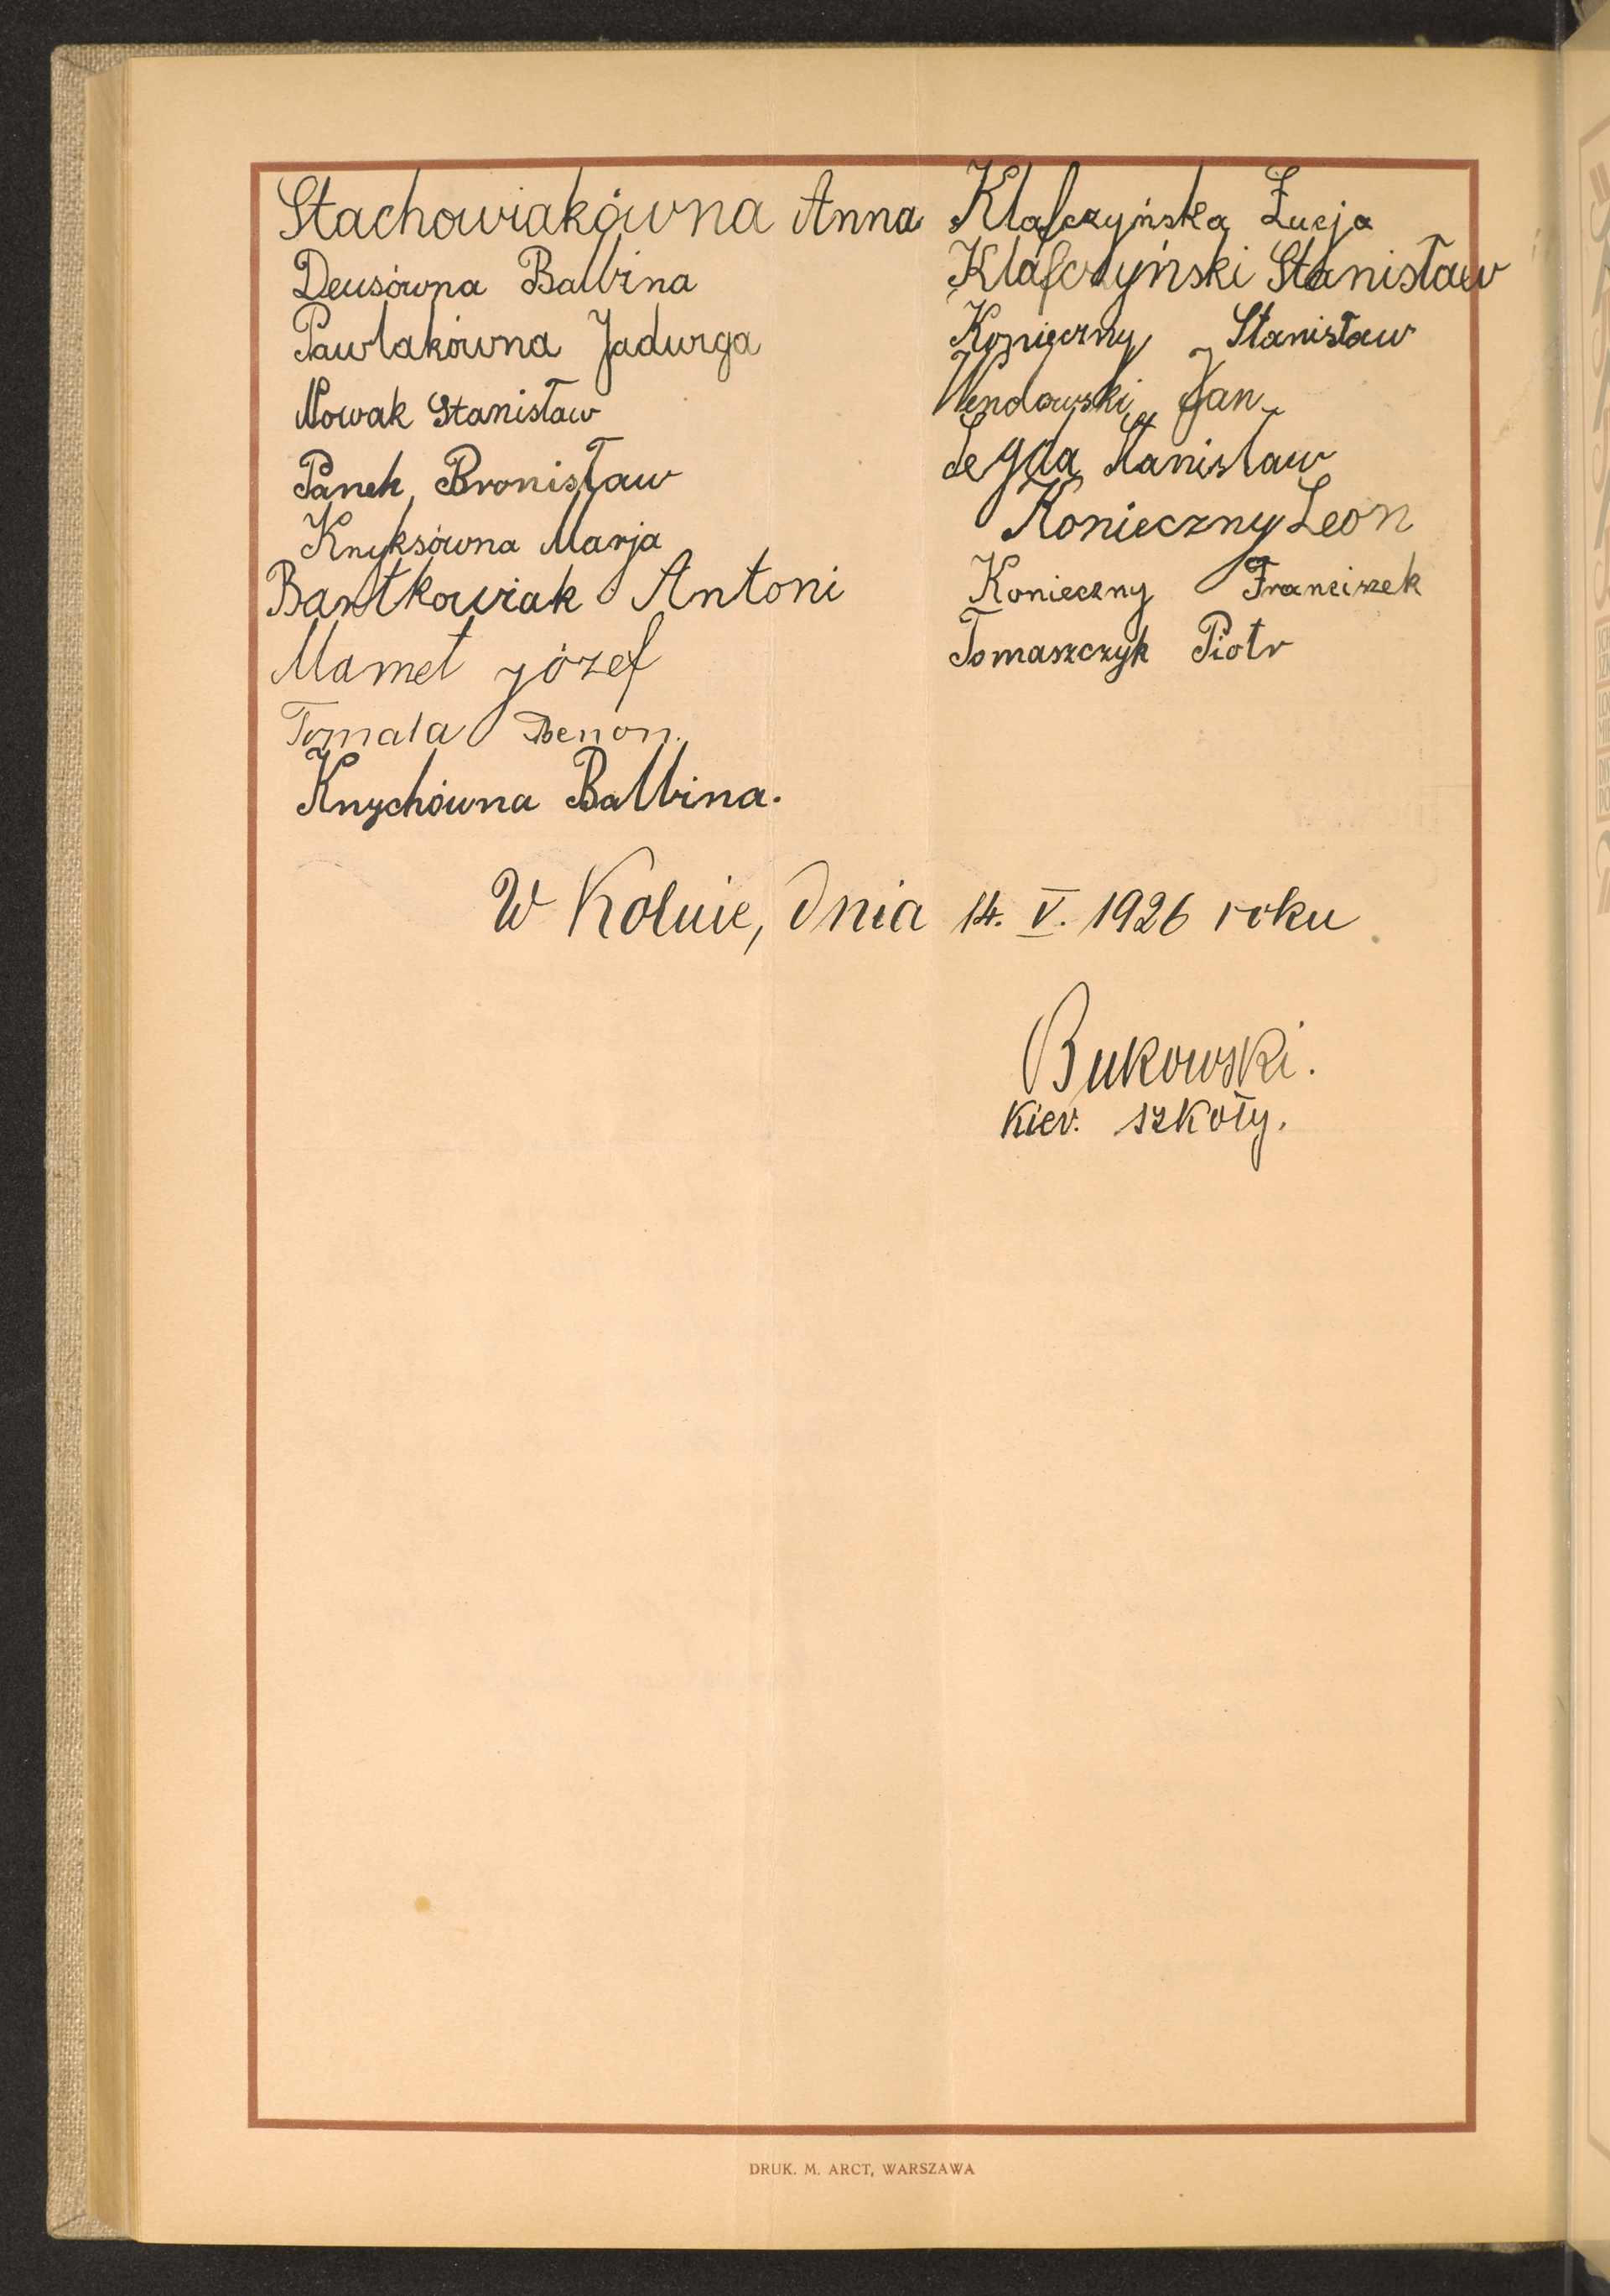 Stachowiakówna Anna
Deusówna Balbina
Pawlakówna Jadwiga
Nowak Stanisław
Panek Bronisław
Knyksówna Marja
Bartkowiak Antoni
Mamet józef
Tomala Benon.
Knychówna Balbina.
Klafczyńska Łucja
Klafczyński Stanisław
Konieczny Stanisław
Wendowski Jan
Segda Stanisław
Konieczny Leon
Konieczny Franciszek
Tomaszczyk Piotr
W Kolnie, dnia 14. V. 1926 roku
Bukowski.
Kier. szkoły.
DRUK. M. ARCT, WARSZAWA